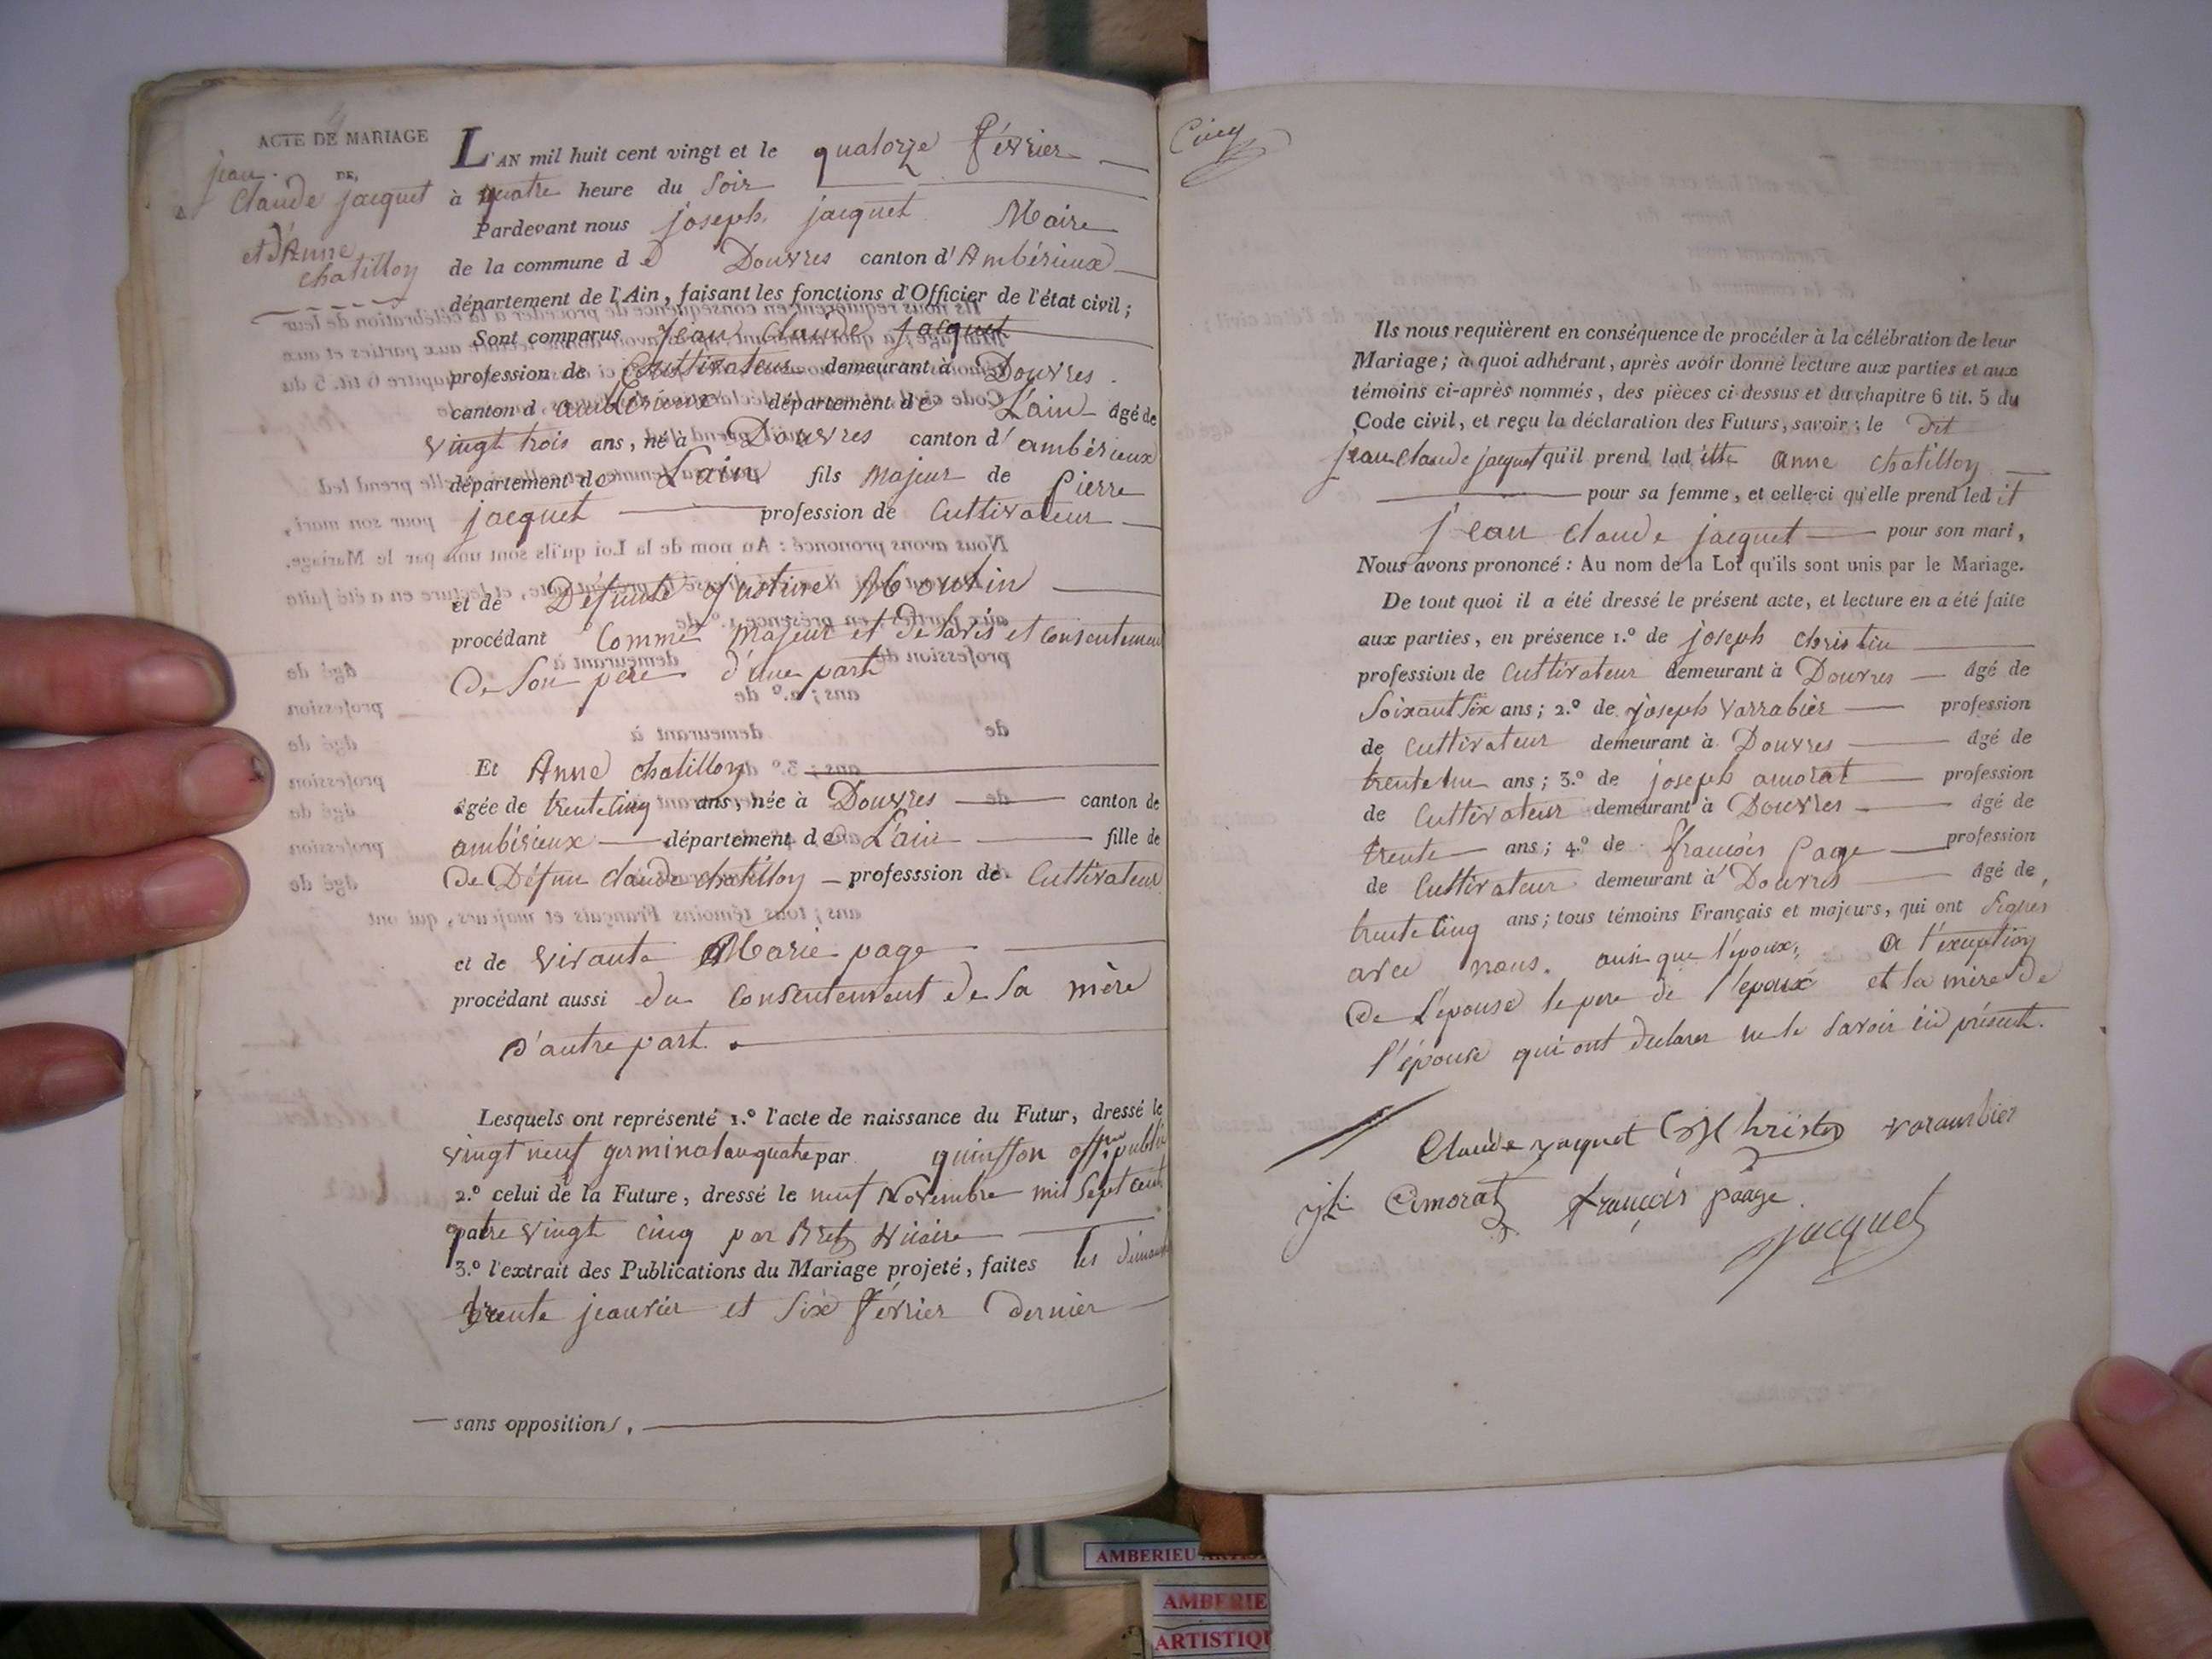 ACTE DE MARIAGE
DE
jean
claude jacquet
et d'Anne
chatillon
L'AN mil huit cent vingt et le quatorze février
à quatre heure du soir
Pardevant nous joseph jacquet Maire
de la commune de Douvres canton d'Ambérieux
département de l'Ain, faisant les fonctions d'Officier de l'état civil;
Sont comparus jean claude jacquet
profession de Cultivateur demeurant à Douvres
canton d ambérieux département de L'ain âgé de
vingt trois ans, né à Douvres canton d'ambérieux
département de Lain fils Majeur de pierre
jacquet profession de Cultivateur
et de Defunte justine Moulin
procédant Comme Majeur et de lavis et Consentement
de son pere d'une part
Et Anne chatillon
âgée de trente cinq ans, née à Douvres canton de
ambérieux département de L'ain fille de
De Défun claude chatillon professsion de Cultivateur
et de vivante Marie page
procédant aussi du Consentement de Sa mère
d'autre part.
Lesquels ont représenté 1.º l'acte de naissance du Futur, dressé le
vingt neuf germinal an quatre par guinsson offier public
2.º celui de la Future, dressé le neuf Novembre mil Sept cent
quatre vingt cinq par Bret Vicaire
3.º l'extrait des Publications du Mariage projeté, faites les dimanche
trente jeanvier et Six février dernier
sans oppositions,
Cinq
Ils nous requièrent en conséquence de procéder à la célébration de leur
Mariage; à quoi adhérant, après avoir donné lecture aux parties et aux
témoins ci-après nommés, des pièces ci-dessus et du chapitre 6 tit. 5 du
Code civil, et reçu la déclaration des Futurs, savoir: le dit
jean claude jacquet qu'il prend lad itte anne chatillon
pour sa femme, et celle-ci qu'elle prend led it
jean claude jacquet pour son mari,
Nous avons prononcé: Au nom de la Loi qu'ils sont unis par le Mariage.
De tout quoi il a été dressé le présent acte, et lecture en a été faite
aux parties, en présence 1.º de joseph christin
profession de Cultivateur demeurant à Douvres âgé de
Soixant Six ans; 2.º de joseph varrabier profession
de Cultivateur demeurant à Douvres âgé de
trente hu ans; 3.º de joseph amorat profession
de Cultivateur demeurant à Douvres âgé de
trente ans; 4.º de françois page profession
de Cultivateur demeurant à Douvres âgé de
trente cinq ans; tous témoins Français et majeurs, qui ont Signés
avec nous. ainsi que l'époux, a l'exception
de L'epouse le pere de l'epoux et la mère de
l'épouse qui ont declarer ne le savoir présent.
Claude jaquet christin varambier
Amorat françois paage
jacquet
AMBERIEU
AMBERIE
ARTISTIQU